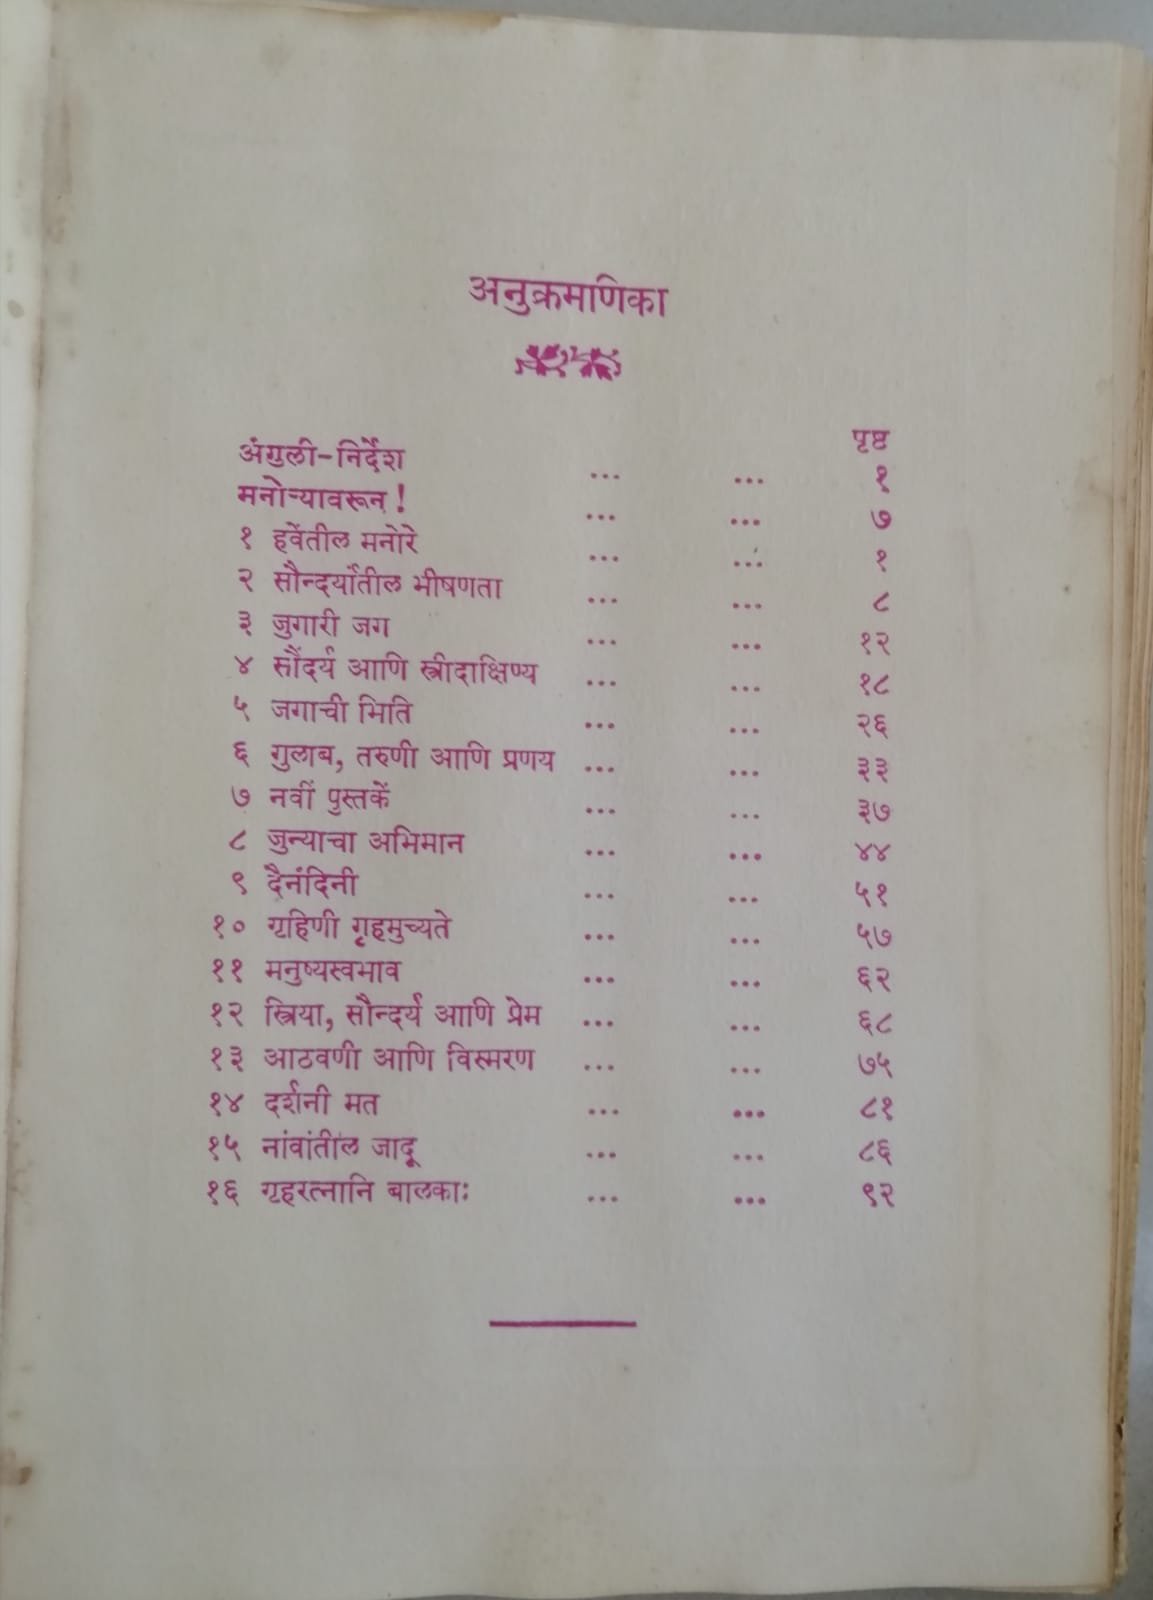 अनुक्रमाणिका
पृष्ठ
अंगुली-निर्देश ... ... १
मनोऱ्यावरून ! ... ... ७
१ हवेंतील मनोरे ... ... १
२ सौन्दर्यांतील भीषणता ... ... ८
३ जुगारी जग ... ... १२
४ सौंदर्य आणि स्त्रीदाक्षिण्य ... ... १८
५ जगाची भिति ... ... २६
६ गुलाब, तरुणी आणि प्रणय ... ... ३३
७ नवीं पुस्तकें ... ... ३७
८ जुन्याचा अभिमान ... ... ४४
९ दैनंदिनी ... ... ५१
१० गृहिणी गृहमुच्यते ... ... ५७
११ मनुष्यस्वभाव ... ... ६२
१२ स्त्रिया, सौन्दर्य आणि प्रेम ... ... ६८
१३ आठवणी आणि विस्मरण ... ... ७५
१४ दर्शनी मत ... ... ८१
१५ नांवांतील जादू ... ... ८६
१६ गृहरत्नानि बालकाः ... ... ९२